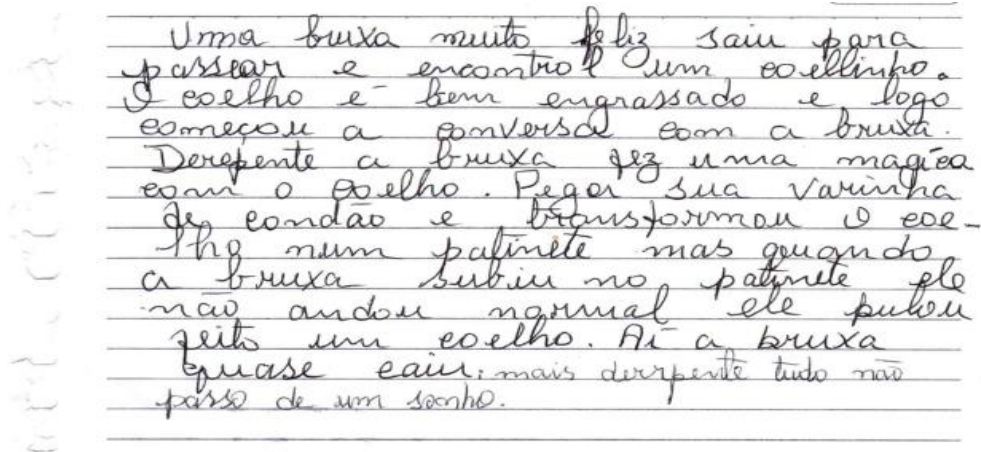 Uma buxa muito feliz saiu para
passear e encontrol um coellinho.
O coelho é bem engrassado e logo
começou a conversa com a bruxa.
Derepente a bruxa fez uma magica
com o coelho. Pegor sua varinha
de condão e transformou o coe-
lho num patinete mas quando
a bruxa subiu no patinete ele
não andou normal ele pulou
feito um coelho. Aí a bruxa
quase caiu. mais derrpente tudo não
passo de um sonho.